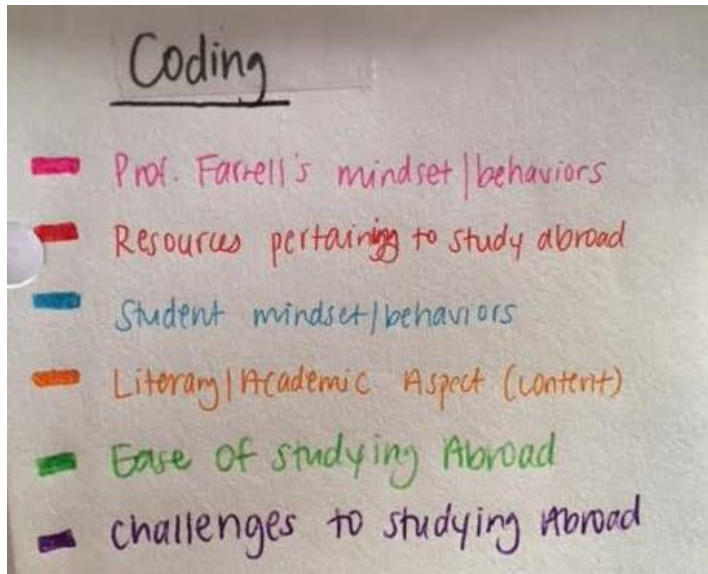 Coding
Prof. Farrell's mindset/behaviors
Resources pertaining to study abroad
Student mindset/behaviors
Literary/Academic Aspect (content)
Ease of studying Abroad
Challenges to studying Abroad